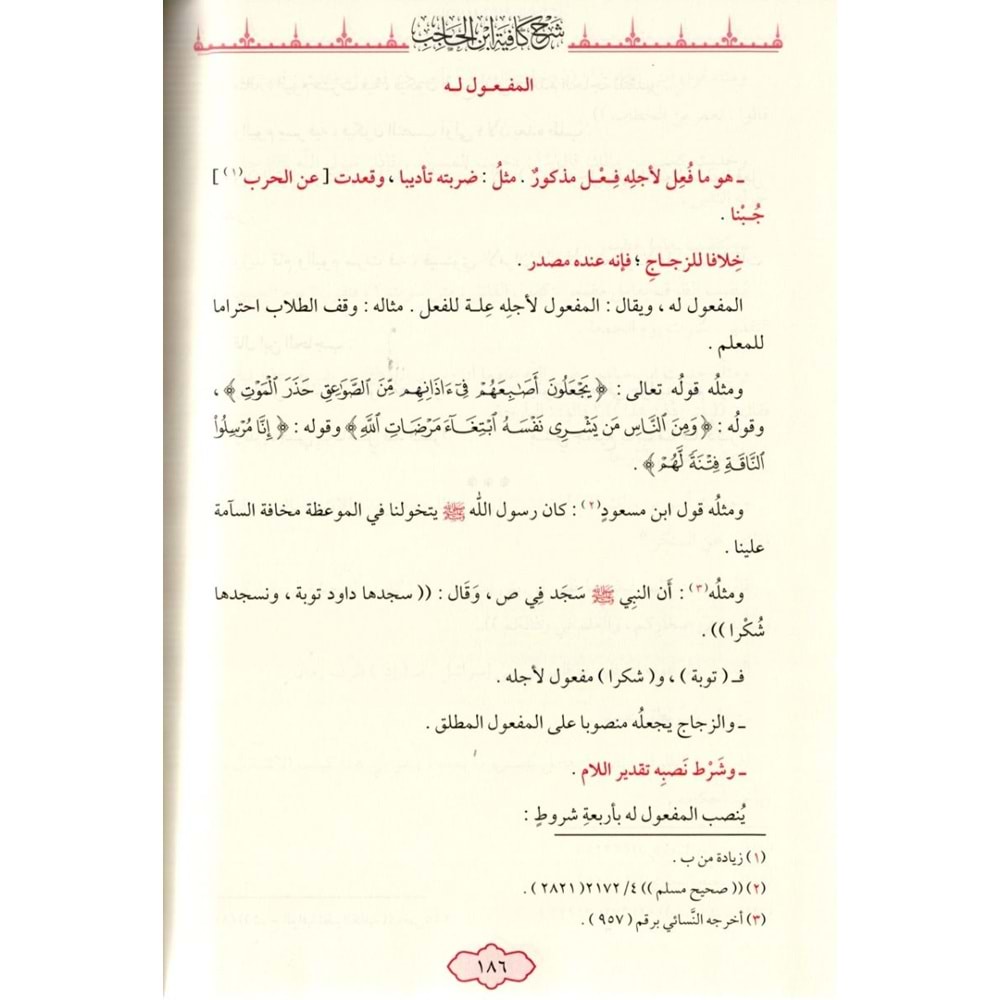 شرح كافية ابن الحاجب
المفعول له
ـ هو ما فُعِل لأجلِه فِعْل مذكورٌ . مثلُ : ضربته تأديبا ، وقعدت [ عن الحرب(١) ]
جُبْنا .
خِلافا للزجاجِ ؛ فإنه عنده مصدر .
المفعول له ، ويقال : المفعول لأجلِه عِلة للفعل . مثاله : وقف الطلاب احتراما
للمعلم .
ومثلُه قولُه تعالى : ﴿ يَجْعَلُونَ أَصَٰبِعَهُمْ فِىٓ ءَاذَانِهِم مِّنَ ٱلصَّوَٰعِقِ حَذَرَ ٱلْمَوْتِ ﴾ ،
وقولُه : ﴿ وَمِنَ ٱلنَّاسِ مَن يَشْرِى نَفْسَهُ ٱبْتِغَآءَ مَرْضَاتِ ٱللَّهِ ﴾ وقوله : ﴿ إِنَّا مُرْسِلُوا۟
ٱلنَّاقَةِ فِتْنَةً لَّهُمْ ﴾ .
ومثلُه قول ابن مسعودٍ(٢) : كان رسول اللّٰه ﷺ يتخولنا في الموعظة مخافة السآمة
علينا .
ومثلُه(٣) : أَن النبِي ﷺ سَجَد فِي ص ، وَقَال : (( سجدها داود توبة ، ونسجدها
شُكْرا )) .
فـ ( توبة ) ، و( شكرا ) مفعول لأجله .
ـ والزجاج يجعلُه منصوبا على المفعول المطلق .
ـ وشَرْط نَصبِه تقدير اللام .
يُنصب المفعول له بأربعةِ شروطٍ :
(١) زيادة من ب .
(٢) (( صحيح مسلم )) ٤/ ٢١٧٢( ٢٨٢١ ) .
(٣) أخرجه النَّسائي برقم ( ٩٥٧ ) .
١٨٦